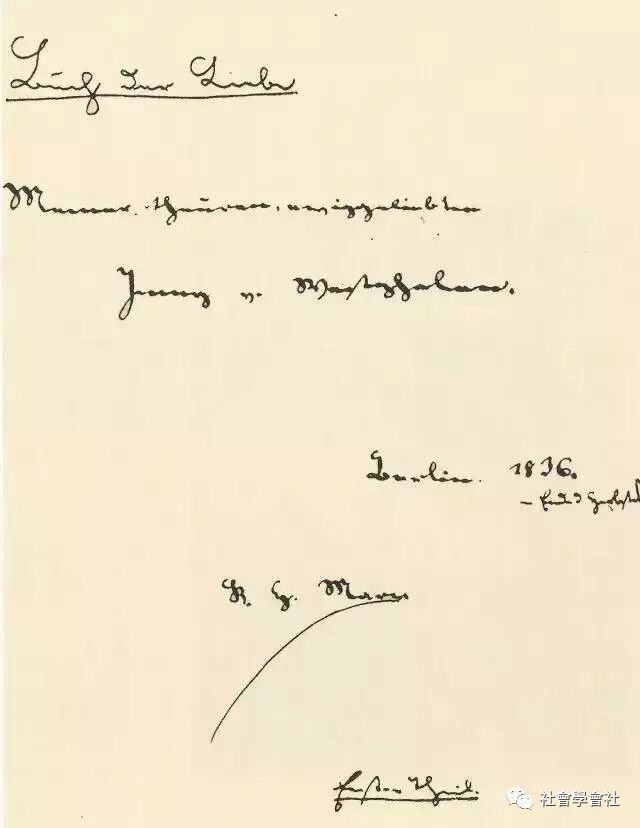 Buch der Liebe
Meiner theuren, ewiggeliebten
Jenny v. Westphalen.
Berlin. 1836.
– Ende d Herbstes
K. H. Marx
Erster Theil.
社會學會社